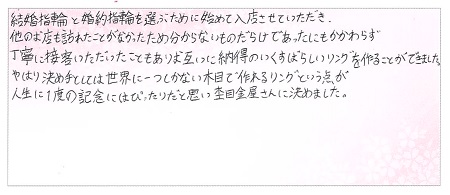 結婚指輪と婚約指輪を選ぶために始めて入店させていただき、
他のお店も訪れたことがなかったため分からないものだらけであったにもかかわらず
丁寧に接客いただいたこともあり お互いに納得のいくすばらしいリングを作ることができました。
やはり決め手としては世界に一つしかない木目で作れるリングという点が
人生に1度の記念にはぴったりだと思い 杢目金屋さんに決めました。